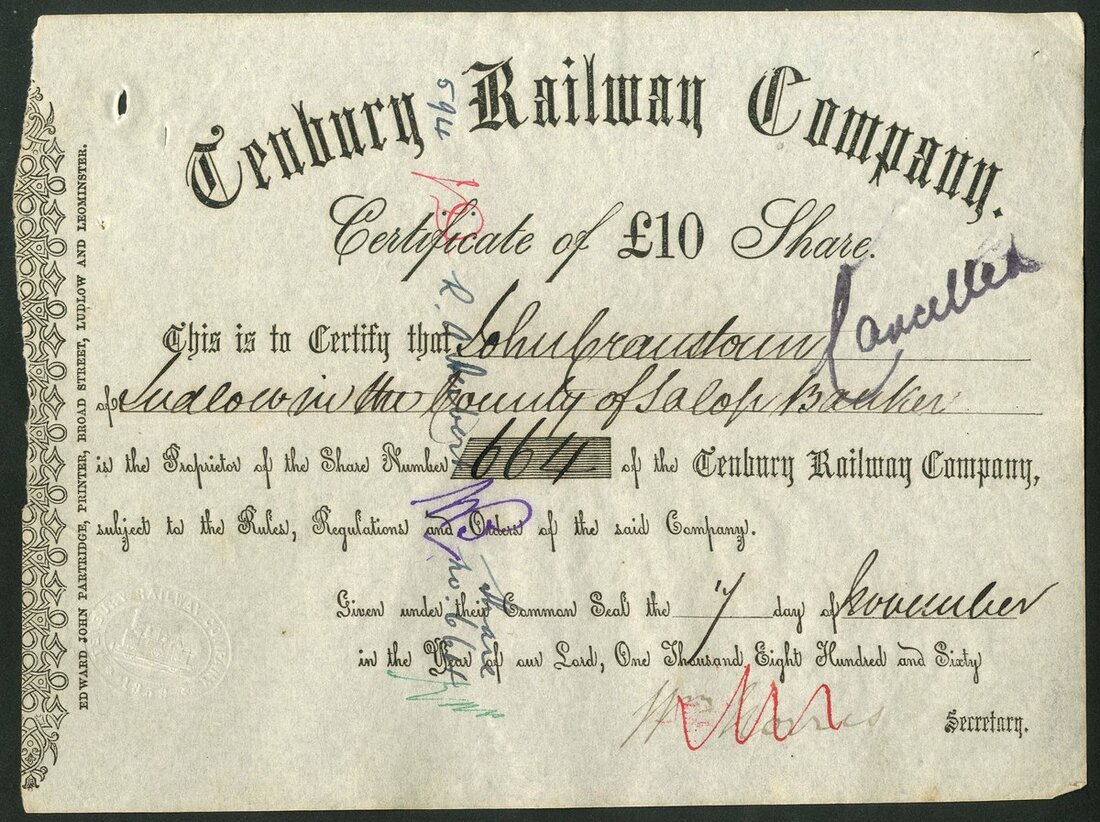 Tenbury Railway Company.
Certificate of £10 Share.
Cancelled
This is to Certify that John Cranstoun
of Ludlow in the County of Salop Banker
is the Proprietor of the Share Number 664 of the Tenbury Railway Company,
subject to the Rules, Regulations and Orders of the said Company.
Given under their Common Seal the 7 day of November
in the Year of our Lord, One Thousand Eight Hundred and Sixty
Wm Norris
Secretary.
EDWARD JOHN PARTRIDGE, PRINTER, BROAD STREET, LUDLOW AND LEOMINSTER.
594
Share
No 664
RAILWAY